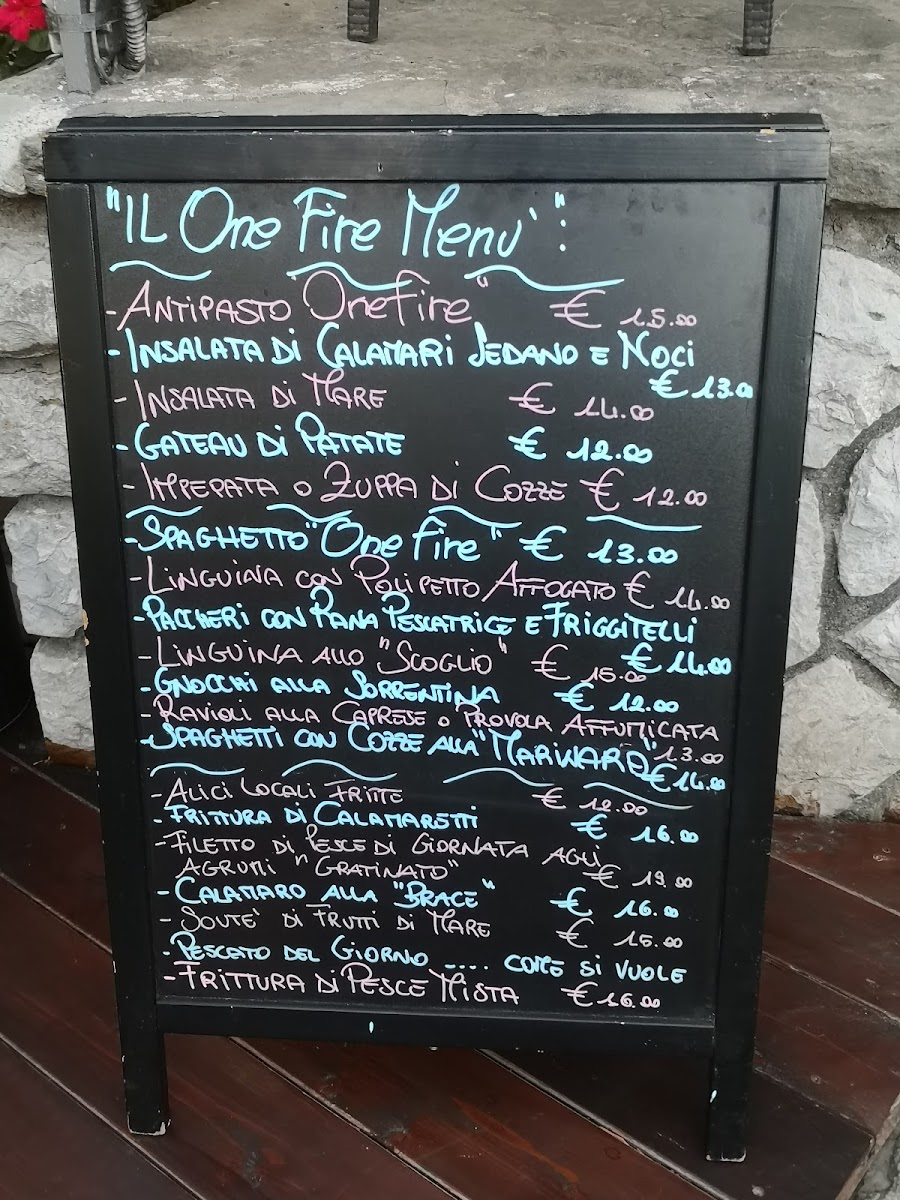 "IL One Fire Menu'":
- ANTIPASTO "OneFire" € 15.00
- INSALATA DI CALAMARI SEDANO E NOCI
€ 13.00
- INSALATA DI MARE € 14.00
- GATEAU DI PATATE € 12.00
- IMPEPATA O ZUPPA DI COZZE € 12.00
- SPAGHETTO "One Fire" € 13.00
- LINGUINA CON POLIPETTO AFFOGATO € 14.00
- PACCHERI CON RANA PESCATRICE E FRIGGITELLI
€ 14.00
- LINGUINA ALLO "SCOGLIO" € 15.00
- GNOCCHI ALLA SORRENTINA € 12.00
- RAVIOLI ALLA CAPRESE O PROVOLA AFFUMICATA
13.00
- SPAGHETTI CON COZZE ALLA "MARINARA"
€ 14.00
- ALICI LOCALI FRITTE € 12.00
- FRITTURA DI CALAMARETTI € 16.00
- FILETTO DI PESCE DI GIORNATA AGLI
AGRUMI "GRATINATO" € 19.00
- CALAMARO ALLA "BRACE" € 16.00
- SOUTE' DI FRUTTI DI MARE € 15.00
- PESCATO DEL GIORNO .... COME SI VUOLE
- FRITTURA DI PESCE MISTA € 16.00